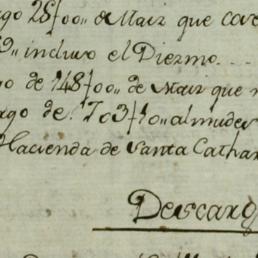 ago 28/00,, de Maiz que
,, incluso el Diezmo...
de 148/00,, de Maiz que
argo de 703/10,, almudes
Hacienda de Santa Cathar
Descarg